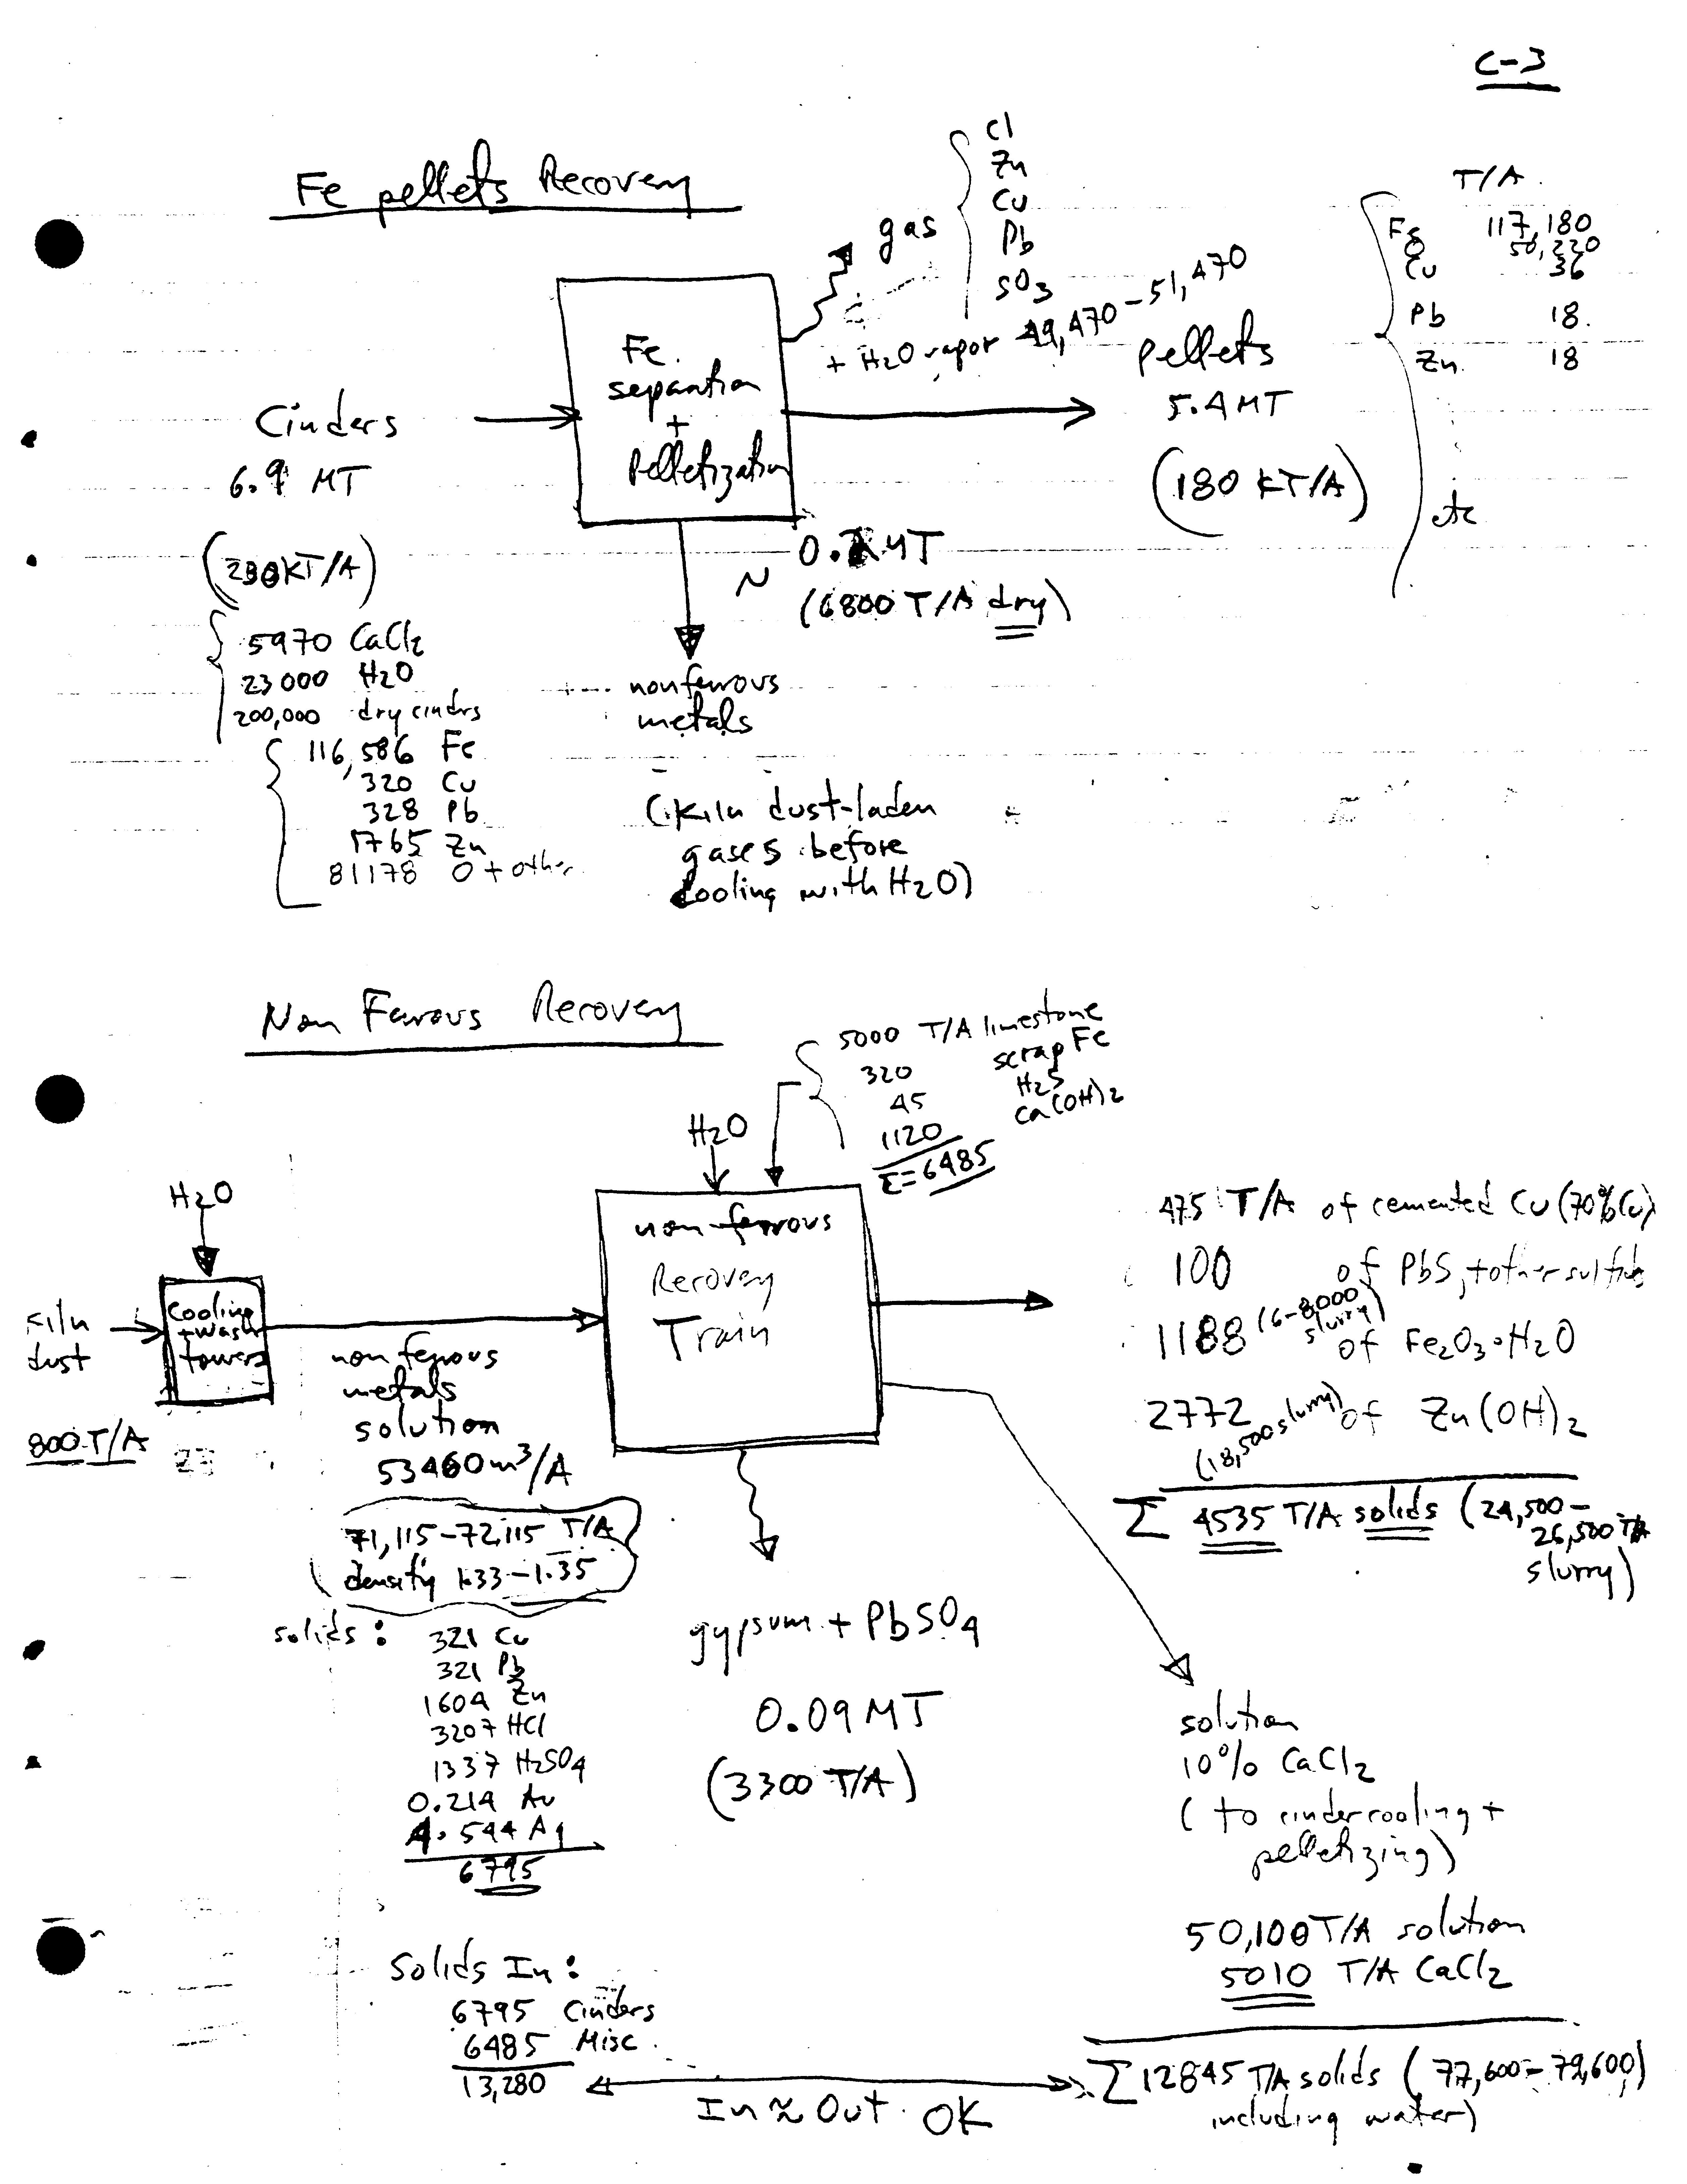 C-3
Fe pellets Recovery
gas
Cl
Zn
Cu
Pb
SO3
+ H2O vapor 49,470-51,470
T/A
Fe 117,180
O 50,220
Cu 36
Pb 18
Zn 18
etc
Fe
separation
+
pelletization
pellets
5.4 MT
(180 KT/A)
Cinders
6.9 MT
(230KT/A)
5970 CaCl2
23000 H2O
200,000 dry cindrs
116,586 Fe
320 Cu
328 Pb
1765 Zn
81178 O + other
~ 0.2 MT
(6800 T/A dry)
nonferrous
metals
(kiln dust-laden
gases before
cooling with H2O)
Non Ferrous Recovery
5000 T/A limestone
320 scrap Fe
45 H2S
1120 Ca(OH)2
Σ=6485
H2O
H2O
non-ferrous
Recovery
Train
cooling
+wash
towers
kiln
dust
800 T/A
non ferrous
metals
solution
53460 m3/A
71,115-72,115 T/A
density 1.33-1.35
solids:
321 Cu
321 Pb
1604 Zn
3207 HCl
1337 H2SO4
0.214 Au
4.544 Ag
6795
gypsum + PbSO4
0.09 MT
(3300 T/A)
475 T/A of cemented Cu (70% Cu)
100 of PbS, + other sulfides
1188 (6-8,000 slurry) of Fe2O3·H2O
2772 (18,500 slurry) of Zn(OH)2
Σ 4535 T/A solids (24,500-
26,500 T/A
slurry)
solution
10% CaCl2
(to cinder cooling +
pelletizing)
50,100 T/A solution
5010 T/A CaCl2
Solids In:
6795 Cinders
6485 Misc.
13,280
In ≈ Out OK
Σ 12845 T/A solids (77,600-79,600)
including water)